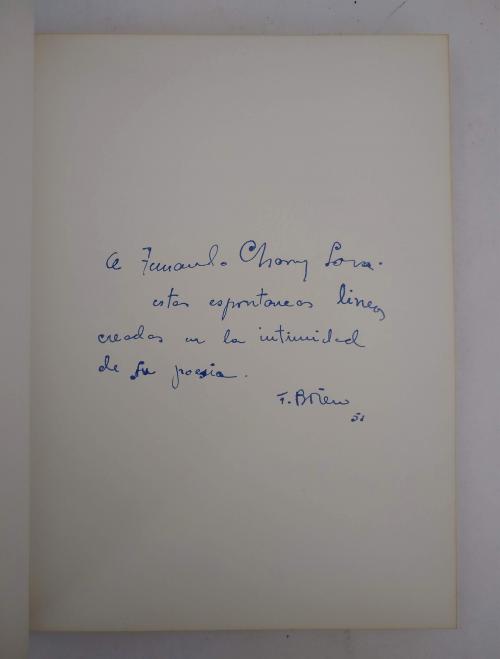 A Fernando Charry Lara.
estas espontaneas lineas
creadas en la intimidad
de su poesia.
F. Botero
51